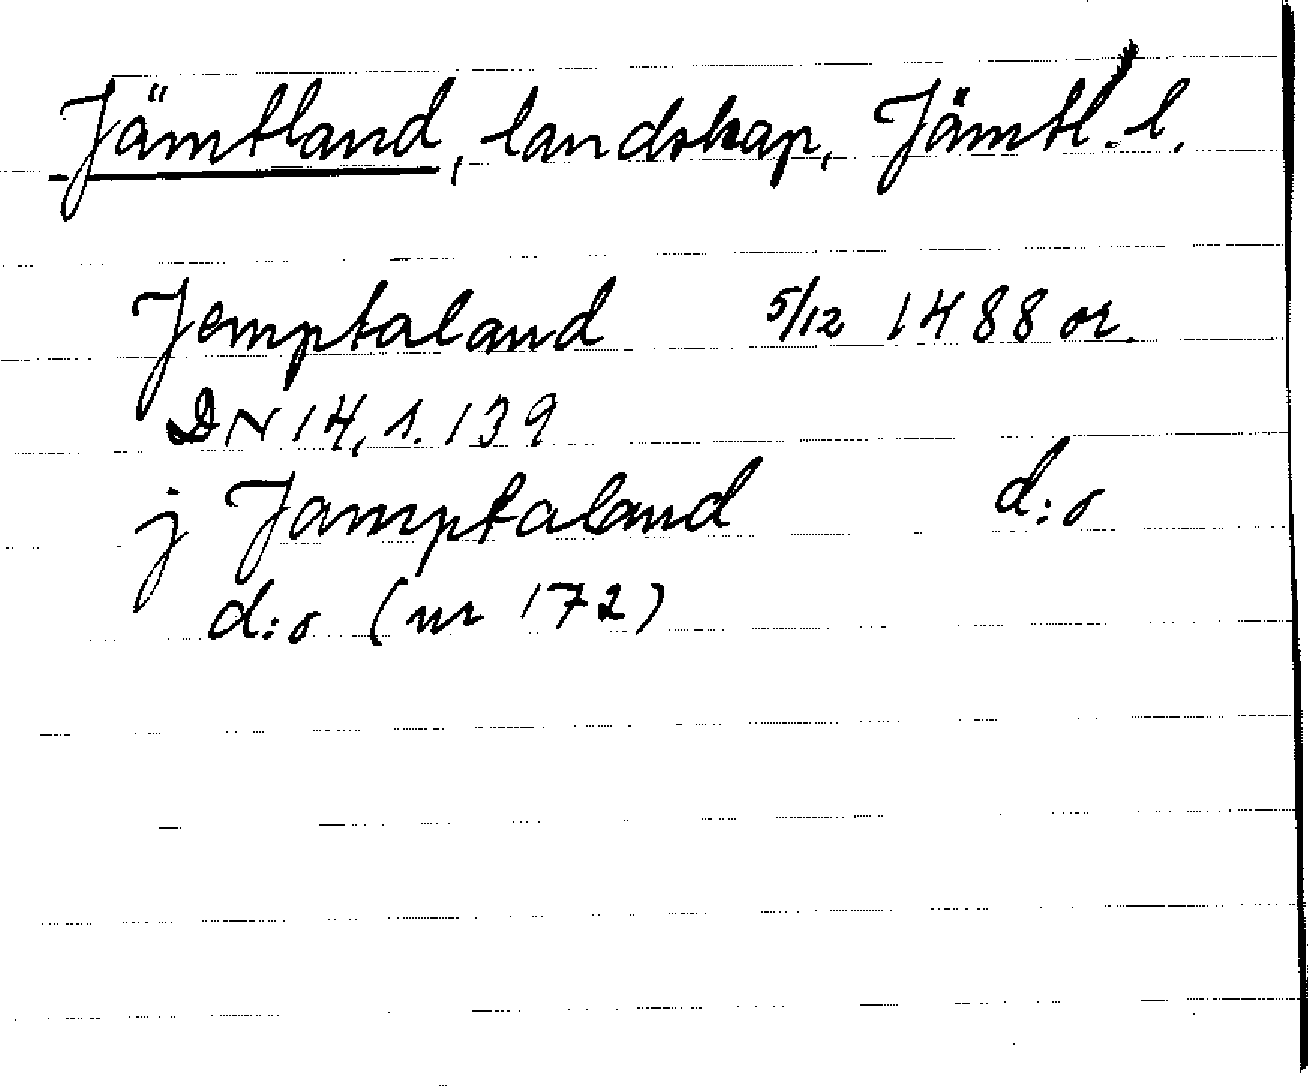 Jämtland, landskap, Jämtl. l.
Jemptaland 5/12 1488 or.
DN 14, 1. 139
j Jamptaland d:o
d:o (nr 172)